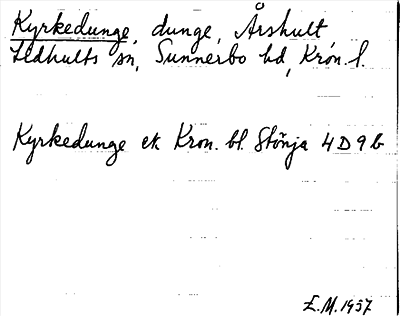 Kyrkedunge, dunge, Årshult
Lidhults sn, Sunnerbo hd, Kron. l.
Kyrkedunge ek Kron. bl. Stönja 4D9b
E.M. 1957